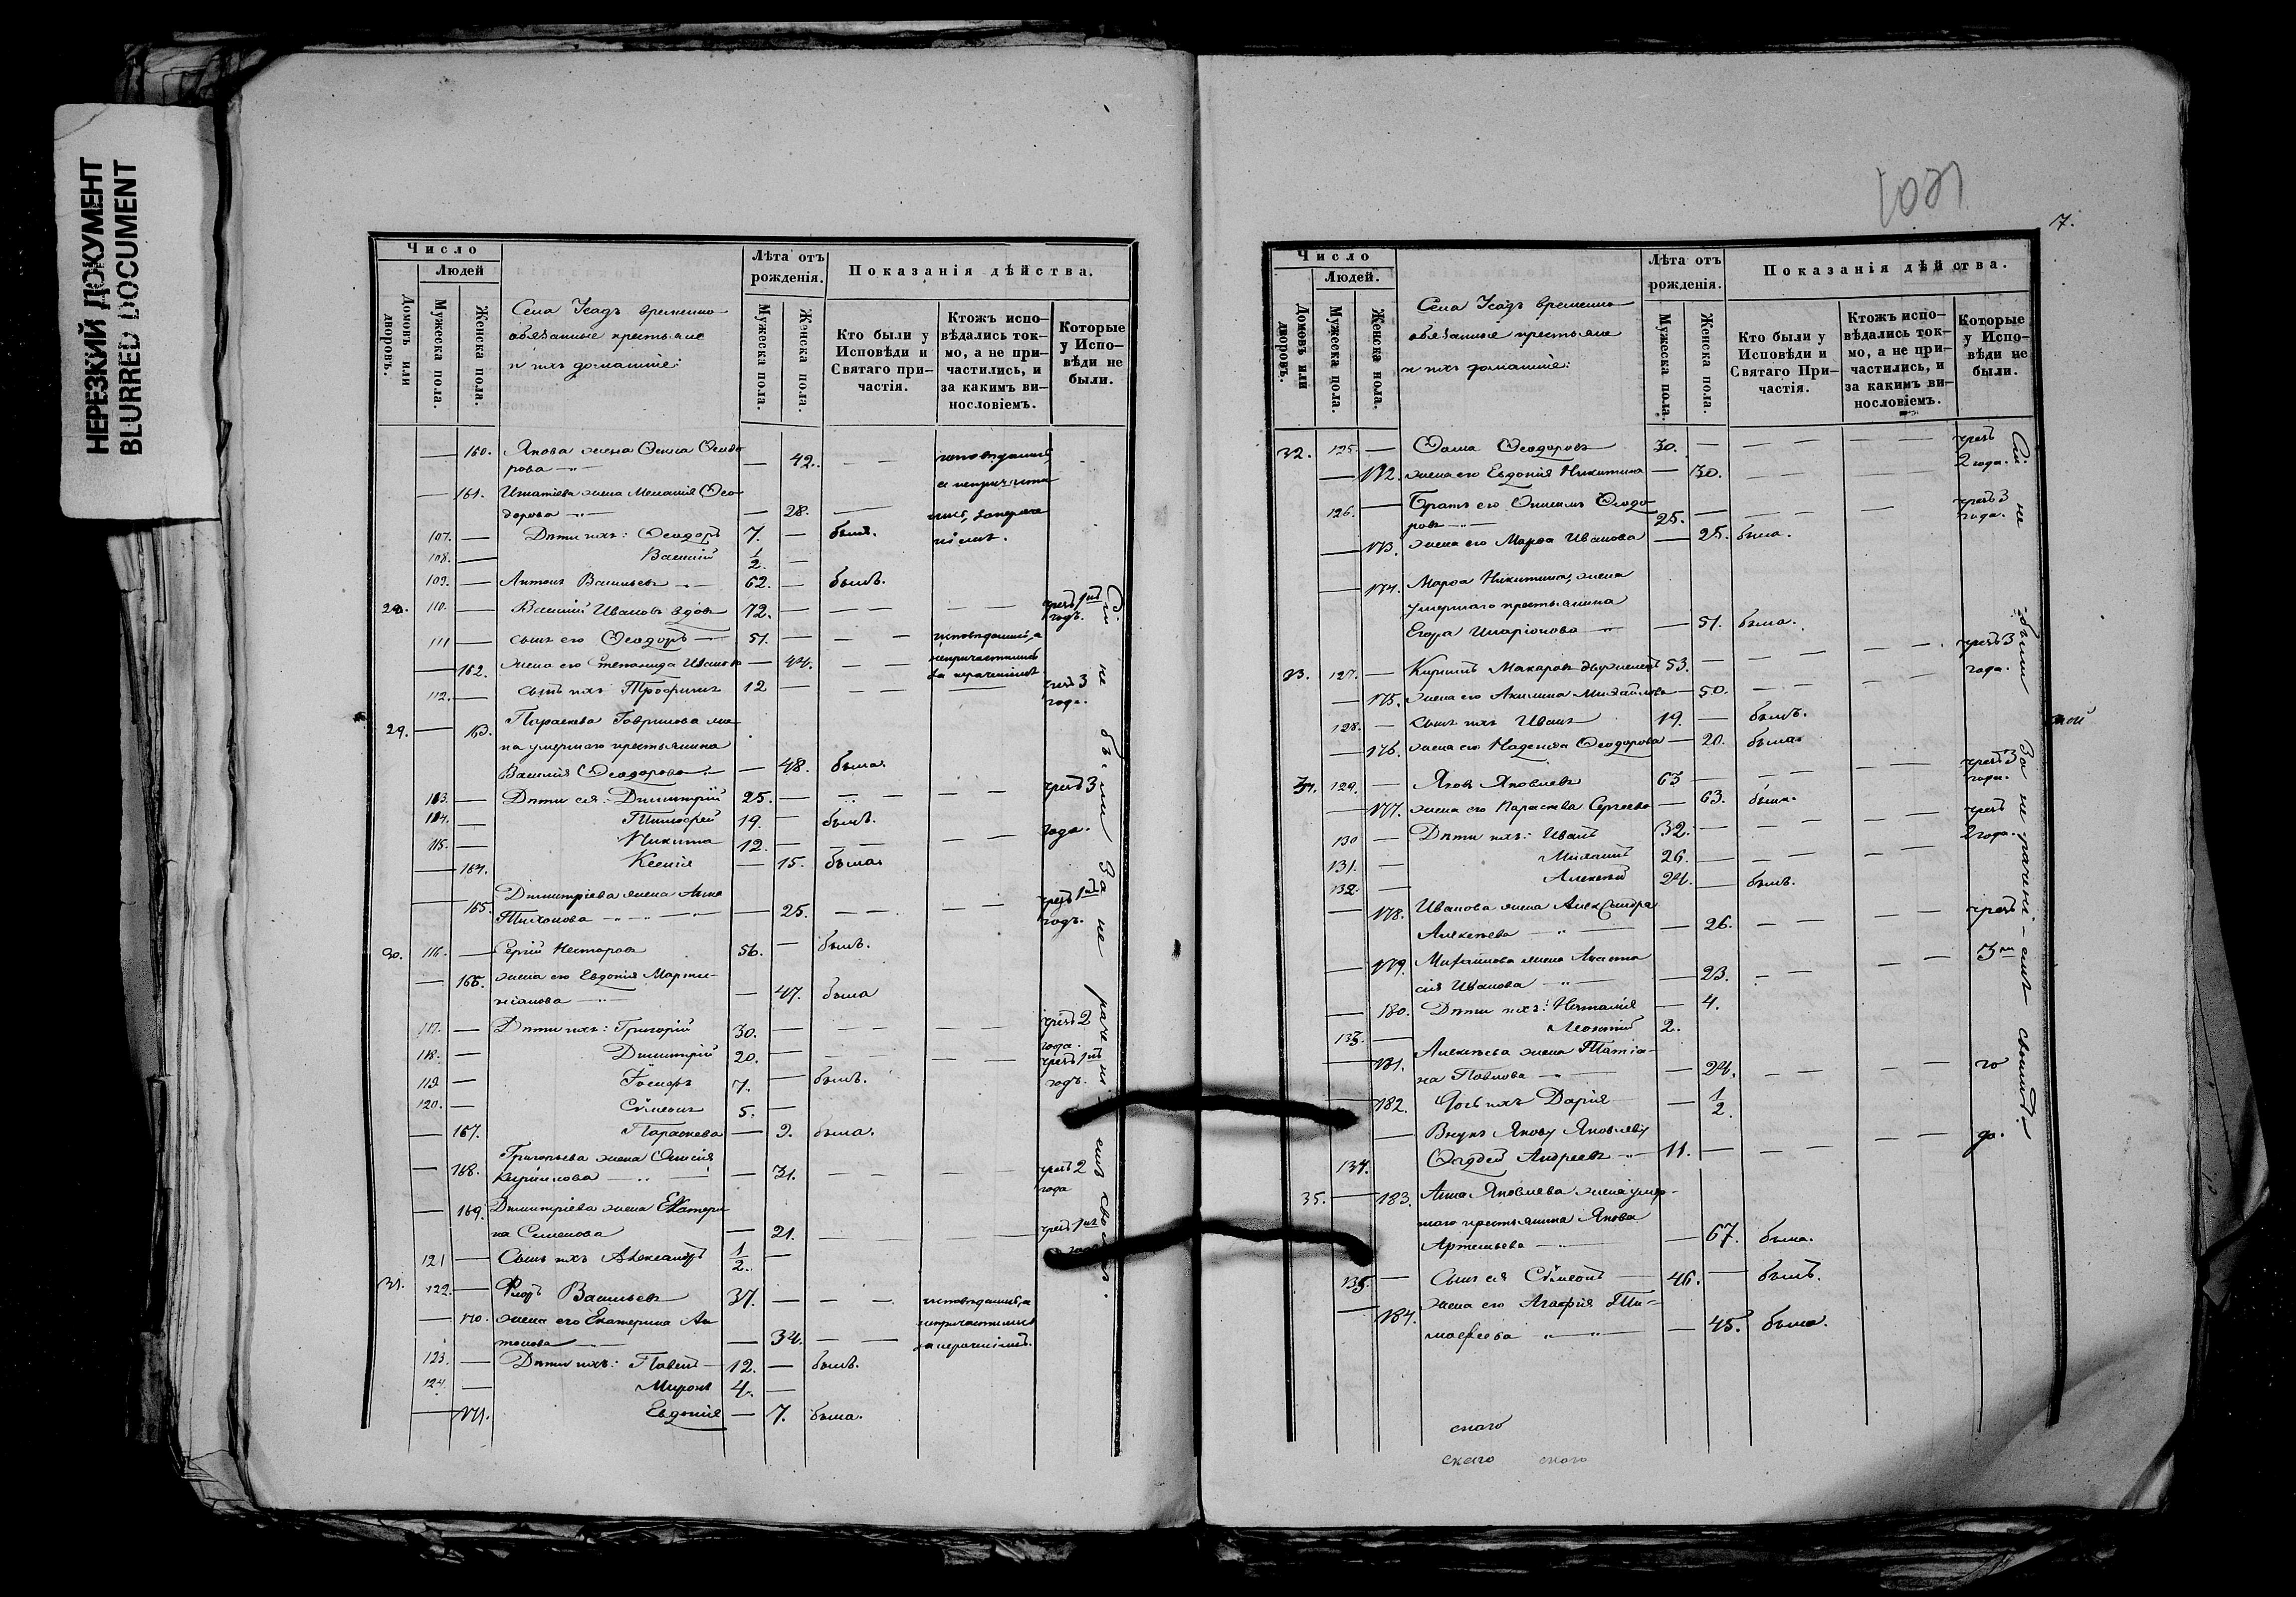 НЕРЕЗКИЙ ДОКУМЕНТ
BLURRED DOCUMENT
Число
Людей
Домовъ или дворовъ.
Мужеска пола.
Женска пола.
Села Усадъ временно-
обязанные крестьяне
и ихъ домашніе:
Лѣта отъ рожденія.
Мужеска пола.
Женска пола.
Показанія дѣйства.
Кто были у Исповѣди и Святаго причастія.
Ктожъ исповѣдались токмо, а не причастились, и за какимъ винословіемъ.
Которые у Исповѣди не были.
— 160. Якова жена Ѳеодо
рова — 42. — — исповѣдались,
— 161. Игнатіева жена Меланія Ѳео
дорова — 28. —
107. — Дѣти ихъ: Ѳеодоръ 7. — былъ.
108. — Василій 1/2. —
109. — Антонъ Васильевъ 62. — былъ.
110. — Василій Ивановъ вдовъ 72. — — — чрезъ 1нъ годъ.
111 — сынъ его Ѳеодоръ 51. — — исповѣдались, а
— 162. жена его Степанида Иванова — 44. — — непричастились за нераченіемъ
112. — сынъ ихъ Трофимъ 12 — — — чрезъ 3 года.
29. — 163. Параскева Гаврилова же
на умершаго крестьянина
Василія Ѳеодорова — 48. была
113. — Дѣти ея: Димитрій 25. — — — чрезъ 3
114. — Тимоѳей 19. — былъ.
115. — Никита 12. — — — года.
— 164. Ксенія — 15. была
— 165. Димитріева жена Анна
Тихонова — 25. — — чрезъ 1нъ годъ.
30. 116. — Сергій Несторовъ 56. — былъ.
— 166. жена его Евдокія Марти-
ніанова — 47. была
117. — Дѣти ихъ: Григорій 30. — — — чрезъ 2 года.
118. — Димитрій 20. — — — чрезъ 1нъ годъ.
119 — 7. — былъ.
120. — Сѷмеонъ 5. —
— 167. Параскева — 9. была.
— 168. Григорьева жена
Кирилова — 31. — — чрезъ 2 года
— 169. Димитріева жена Екатери
на Семенова — 21. — — чрезъ 1нъ
121 — Сынъ ихъ Александръ 1/2. —
31. 122. — Флоръ Васильевъ 37. — — исповѣдались, а
— 170. жена его Екатерина Ан непричастились
тонова — 34. — — за нераченіемъ.
123. — Дѣти ихъ: Павелъ 12. — былъ.
124. — Миронъ 4. —
— 171. Евдокія — 7. была.
Сіи не были за не раченіемъ своимъ.
17.
Число
Людей.
Домовъ или дворовъ.
Мужеска пола.
Женска пола.
Села Усадъ временно-
обязанные крестьяне
и ихъ домашніе:
Лѣта отъ рожденія.
Мужеска пола.
Женска пола.
Показанія дѣйства.
Кто были у Исповѣди и Святаго Причастія.
Ктожъ исповѣдались токмо, а не причастились, и за какимъ винословіемъ.
Которые у Исповѣди не были.
32. 125. — Ѳома Ѳеодоровъ 30. — — — чрезъ 2 года.
— 172. жена его Евдокія Никитина — 30. — —
126. — Братъ его Онисимъ Ѳеодо
ровъ 25. — — — чрезъ 3 года.
— 173. жена его Марѳа Иванова — 25. была.
— 174. Марѳа Никитина, жена
умершаго крестьянина
Егора Иларіонова — 51. была.
33. 127. — Кирилъ Макаровъ 53. — — — чрезъ 3 года.
— 175. жена его Акилина Михайлова — 50. — —
128. — сынъ ихъ Иванъ 19. — былъ.
— 176. жена его Надежда Ѳеодорова — 20. была
34. 129. — Яковъ Яковлевъ 63 — — — чрезъ 3 года.
— 177. жена его Параскева Сергеева — 63. была.
130 — Дѣти ихъ: Иванъ 32. — — — чрезъ 2 года.
131. — Михаилъ 26. — — —
132. — Алексѣй 24. — былъ.
— 178. Иванова жена Александра
Алексѣева — 26. — — чрезъ
— 179. Михайлова жена Анаста
сія Иванова — 23. — — 3
— 180. Дѣти ихъ: Наталія — 4.
133. — Леонтій 2.
— 181. Алексѣева жена Татіа-
на Павлова — 24. — — го
— 182. Дочь ихъ Дарія — 1/2.
— Внукъ Якову Яковлеву
134. Ѳаддей Андреевъ 11. — — — да.
35. — 183. Анна Яковлева жена умер-
шаго крестьянина Якова
Артемьева — 67. была.
135. — Сынъ ея Сѷмеонъ 46. — былъ.
— 184. жена его Агафія Ти-
моѳеева — 45. была.
Сіи не были за не раченіемъ своимъ.
скаго
скаго скаго